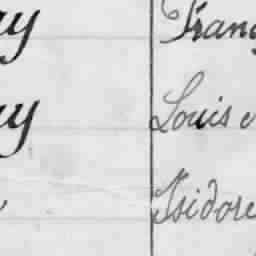 ay Franç
ay Louis
Isidore